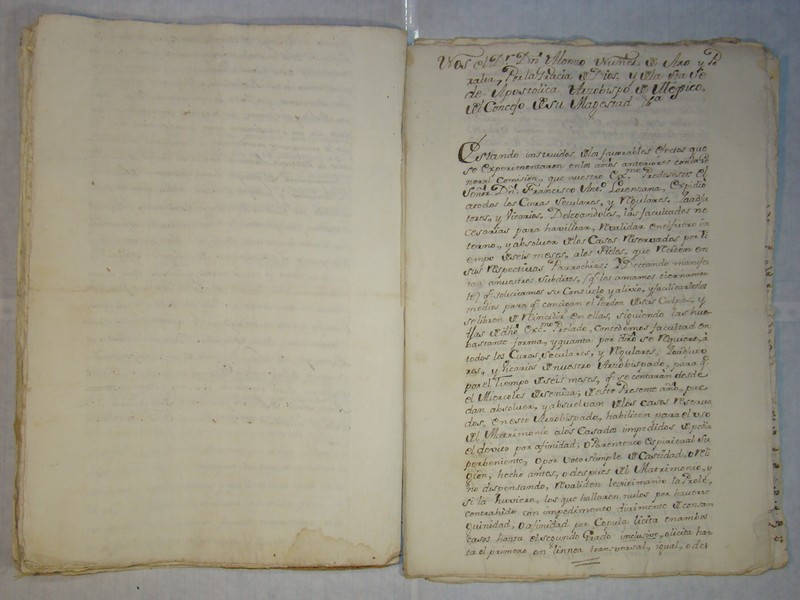 Nos el Dr. Dn. Alonso Nuñez de Aro y Pe
ralta, Por la Gracia de Dios, y de la Sta Se
de Apostolica Arzobispo de Mexico,
del Consejo de su Magestad &a
Estando instruidos de los favorables efectos que
se experimentaron en los años anteriores con la ge
neral Comision, que nuestro Exmo. Predecesor el
Señor Dn. Francisco Anto. Lorenzana, Expidio
a todos los Curas Seculares, y Regulares,
y Vicarios, Delegandoles, las facultades ne
cesarias para havilitar, Revalidar en el fuero in
terno, y absolver de los Casos Reservados por ti
empo de seis meses, a los Fieles, que Residen en
sus Respectivas Parrochias: Y Deseando manifes
tar a nuestros Subditos, (qe. los amamos tiernamen
te) qe. solicitamos su Consuelo y alivio, y facilitarles los
medios para qe. consigan el Perdon de sus Culpas, y
se libren de Reincidir en ellas, siguiendo las hue
llas de dho Exmo. Prelado, Concedemos facultad en
bastante forma, y quanta por dro se Requiere, a
todos los Curas Seculares, y Regulares,
y Vicarios de nuestro Arzobispado, para qe.
por el Tiempo de seis meses, qe. se contarán desde
el Miercoles de Seniza, de este Presente año, pue
dan absolver, y absuelvan de los casos Reserva
dos, en este Arzobispado, habiliten para el uso
del Matrimonio a los Casados impedidos, de pedir
el devito por afinidad, o Parentesco espiritual su
perveniente, o por Voto simple de Castidad, o Reli
gion, hecho antes, o despues del Matrimonio, y
no dispensando, Revaliden legitimando la Prole,
si la huviere, los que hallaren nulos por haverse
contrahido con impedimento dirimente de consan
guinidad, o afinidad por Copula licita en ambos
casos hasta el segundo Grado inclusive, e licita has
ta el primero, en linnea transversal, igual, o des